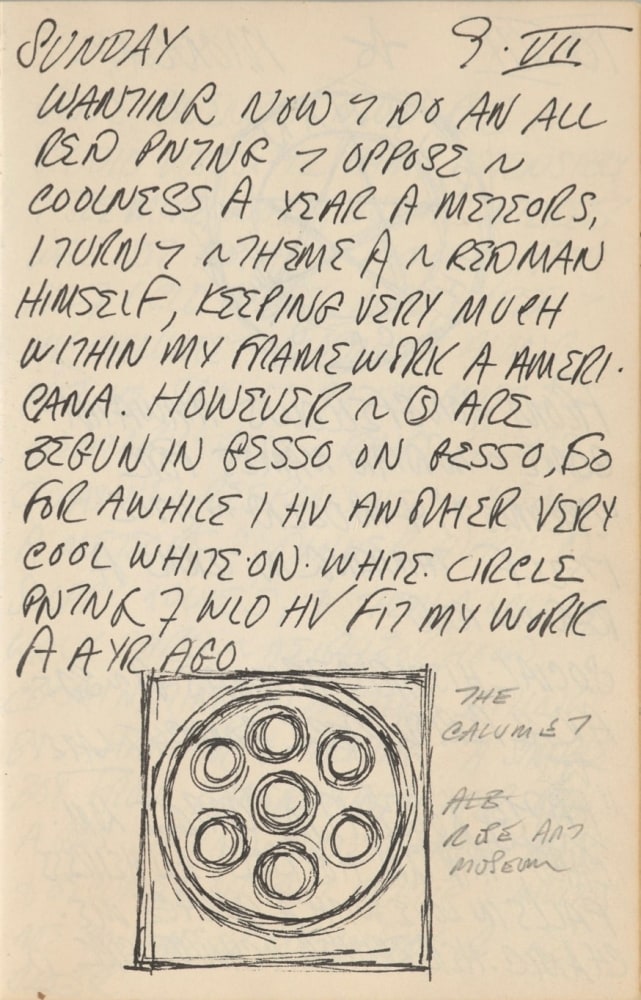 SUNDAY 9·VII
WANTING NOW TO DO AN ALL
RED PNTNG TO OPPOSE
COOLNESS A YEAR A METEORS,
I TURN TO THEME A REDMAN
HIMSELF, KEEPING VERY MUCH
WITHIN MY FRAMEWORK A AMERI-
CANA. HOWEVER ARE
BEGUN IN GESSO ON GESSO, SO
FOR AWHILE I HV ANOTHER VERY
COOL WHITE·ON·WHITE·CIRCLE
PNTNG T WLD HV FIT MY WORK
A A YR AGO
THE
CALUMET
ALB
ROSE ART
MUSEUM